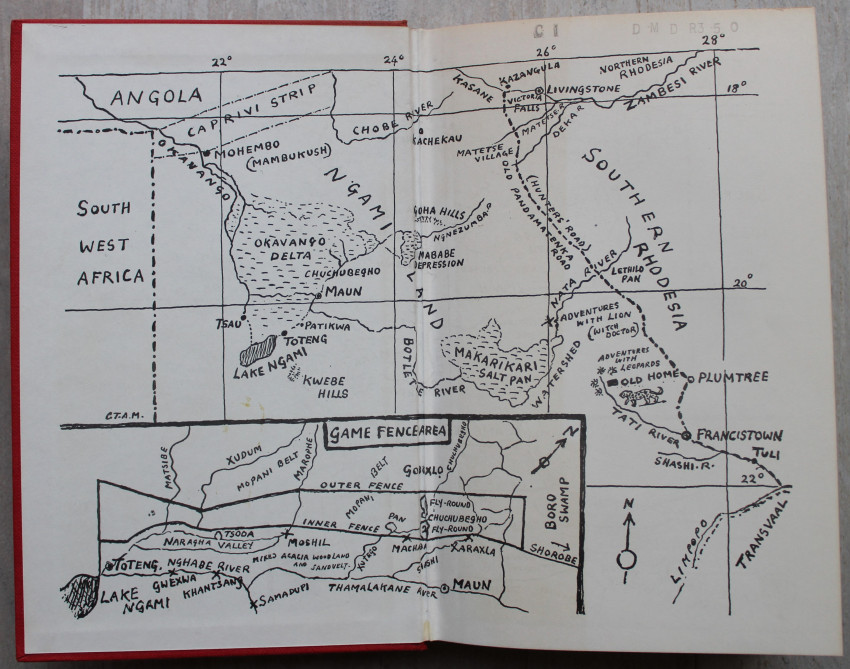 C I
D M D R3 5 0
22°
24°
26°
28°
ANGOLA
CAPRIVI STRIP
CHOBE RIVER
KASANE
KAZANGULA
VICTORIA
FALLS
LIVINGSTONE
NORTHERN
RHODESIA
ZAMBESI RIVER
18°
OKAVANGO
MOHEMBO
(MAMBUKUSH)
KACHEKAU
MATETSE R.
DEKA R.
MATETSE
VILLAGE
OLD PANDAMATENKA
ROAD
(HUNTERS' ROAD)
SOUTHERN
RHODESIA
NGAMI
LAND
SOUTH
WEST
AFRICA
GOHA HILLS
NGNEZUMBA
OKAVANGO
DELTA
MABABE
DEPRESSION
CHUCHUBEGHO
MAUN
NATA RIVER
LETHILO
PAN
20°
TSAU
PATIKWA
TOTENG
LAKE NGAMI
KWEBE
HILLS
BOTLETLE
RIVER
MAKARIKARI
SALT PAN
WATERSHED
ADVENTURES
WITH LION
(WITCH
DOCTOR)
ADVENTURES
WITH
LEOPARDS
OLD HOME
PLUMTREE
TATI RIVER
FRANCISTOWN
SHASHI. R.
TULI
22°
LIMPOPO
TRANSVAAL
N
C.T.A.M.
GAME FENCE AREA
MATSIBE
XUDUM
MOPANI BELT
MAROPHE
MOPANI
BELT
GOHXLO
CHUCHUBEGHO
N
OUTER FENCE
INNER FENCE
PAN
FLY-ROUND
CHUCHUBEGHO
FLY-ROUND
BORO
SWAMP
TSODA
NARAGHA VALLEY
MOSHIL
MACHABA
XARAXLA
SHOROBE
TOTENG
NGHABE RIVER
MIXED ACACIA WOODLAND
AND SANDVELT
GWEXWA
KHANTSANG
LAKE
NGAMI
SAMADUPI
THAMALAKANE RIVER
MAUN